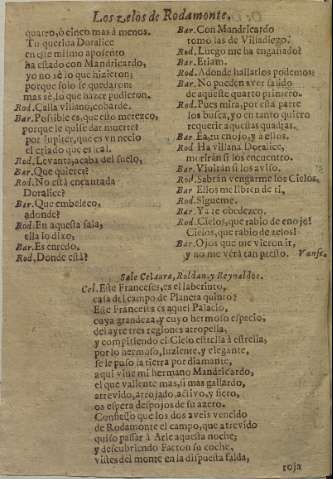 Los zelos de Rodamonte.
quatro, ò cinco mas à menos.
Tu querida Doralice
en que mismo aposento
ha estado con Mandricardo,
yo no sè lo que hizieron;
porque solo se quedaron;
mas sè, lo que hizer pudieron.
Rod. Calla villano, cobarde.
Bar. Possible es, que esto merezco,
porque le quise dar muerte?
por Iupiter, que es vn necio
el criado que es leal.
Rod. Levanta, acaba del suelo,
Bar. Que quieres?
Rod. No està encantada
Doralice?
Bar. Que embeleco,
adonde?
Rod. En aquesta sala,
ella lo dixo,
Bar. Es enredo.
Rod. Donde està?
Bar. Con Mandricardo
tomò las de Villadiego.
Rod. Luego me ha engañado?
Bar. Etiam.
Rod. Adonde hallarlos podemos?
Bar. No pueden aver salido
de aqueste quarto primero.
Rod. Pues mira, por esta parte
los busca, yo en tanto quiero
requerir aquestas quadras.
Bar. Ea, tu enojo, y a ellos.
Rod. Ha villana Doralice,
moriràn si los encuentro.
Bar. Viuiràn si los aviso.
Rod. Sabràn vengarme los Cielos.
Bar. Ellos me libren de ti,
Rod. Sigueme.
Bar. Ya te obedezco.
Rod. Cielos, que rabio de enojo!
Cielos, que rabio de zelos!
Bar. Ojos que me vieron ir,
y no me veràn tan presto. Vanse.
Sale Celaura, Roldan, y Reynaldos.
Cel. Este Franceses, es el laberinto,
casa del campo de Planeta quinto?
Este Franceses es aquel Palacio,
cuya grandeza, y cuyo hermoso espacio,
del ayre tres regiones atropella,
y compitiendo el Cielo estrella à estrella,
por lo hermoso, luziente, y elegante,
se le puso la tierra por diamante,
aqui viue mi hermano Mandricardo,
el que valiente mas, si mas gallardo,
atrevido, arrojado, activo, y fiero,
os espera despojos de su azero.
Confiesso que los dos aveis vencido
de Rodamonte el campo, que atrevido
quiso passar à Arle aquesta noche;
y descubriendo Facton su coche,
vistes del monte en la dispuesta falda,
roja